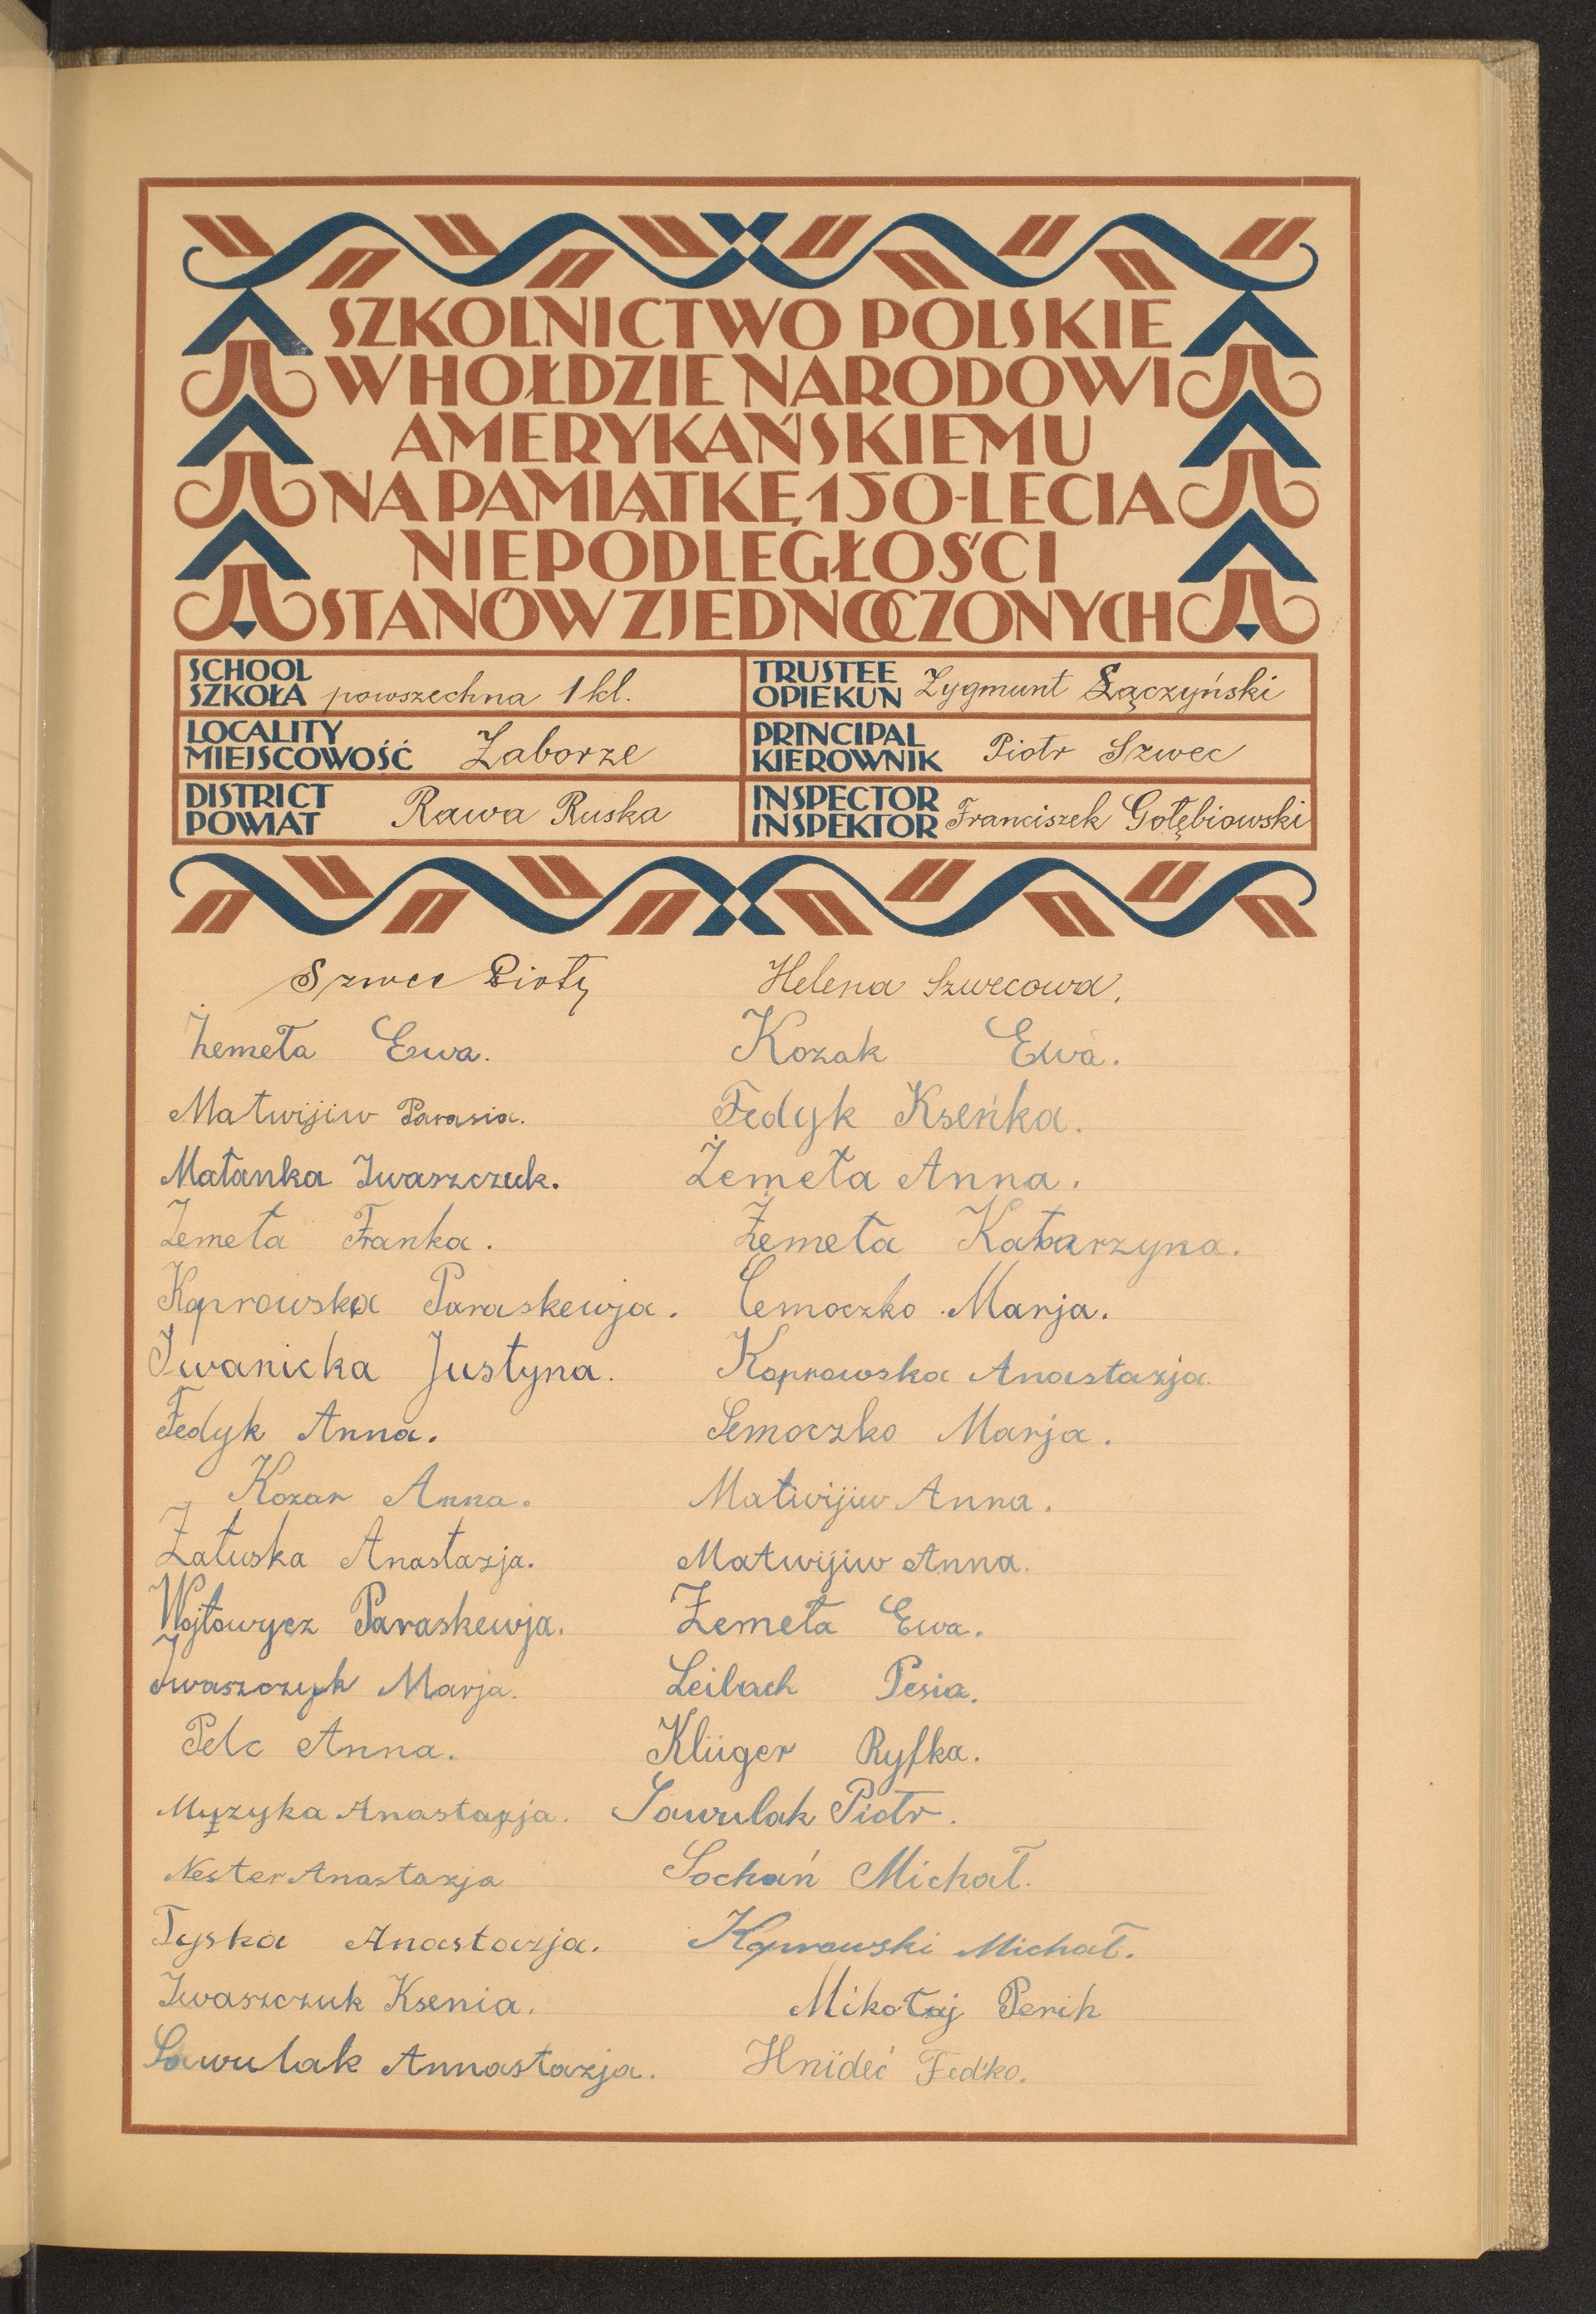 SZKOLNICTWO POLSKIE
W HOŁDZIE NARODOWI
AMERYKAŃSKIEMU
NA PAMIĄTKĘ 150-LECIA
NIEPODLEGŁOŚCI
STANÓW ZJEDNOCZONYCH
SCHOOL
SZKOŁA powszechna 1 kl.
TRUSTEE
OPIEKUN Zygmunt Łączyński
LOCALITY
MIEJSCOWOŚĆ Zaborze
PRINCIPAL
KIEROWNIK Piotr Szwec
DISTRICT
POWIAT Rawa Ruska
INSPECTOR
INSPEKTOR Franciszek Gołębiowski
Szwec Piotr
Helena Szwecowa.
Żemeła Ewa.
Kozak Ewa.
Matwijiw Parasia.
Fedyk Kseńka.
Małanka Iwaszczuk.
Żemeła Anna.
Żemeła Franka.
Żemeła Katarzyna.
Koprowska Paraskewja.
Cemoczko Marja.
Iwanicka Justyna.
Koprowska Anastazja.
Fedyk Anna.
Semoczko Marja.
Kozar Anna.
Matwijiw Anna.
Załuska Anastazja.
Matwijiw Anna.
Wojtowycz Paraskewja.
Żemeła Ewa.
Iwaszczuk Marja.
Leibach Pesia.
Pelc Anna.
Klüger Ryfka.
Muzyka Anastazja.
Sawulak Piotr.
Nester Anastazja
Sochań Michał.
Tyska Anastazja.
Koprowski Michał.
Iwaszczuk Ksenia.
Mikołaj Perih
Sawulak Annastazja.
Hnideć Fed'ko.